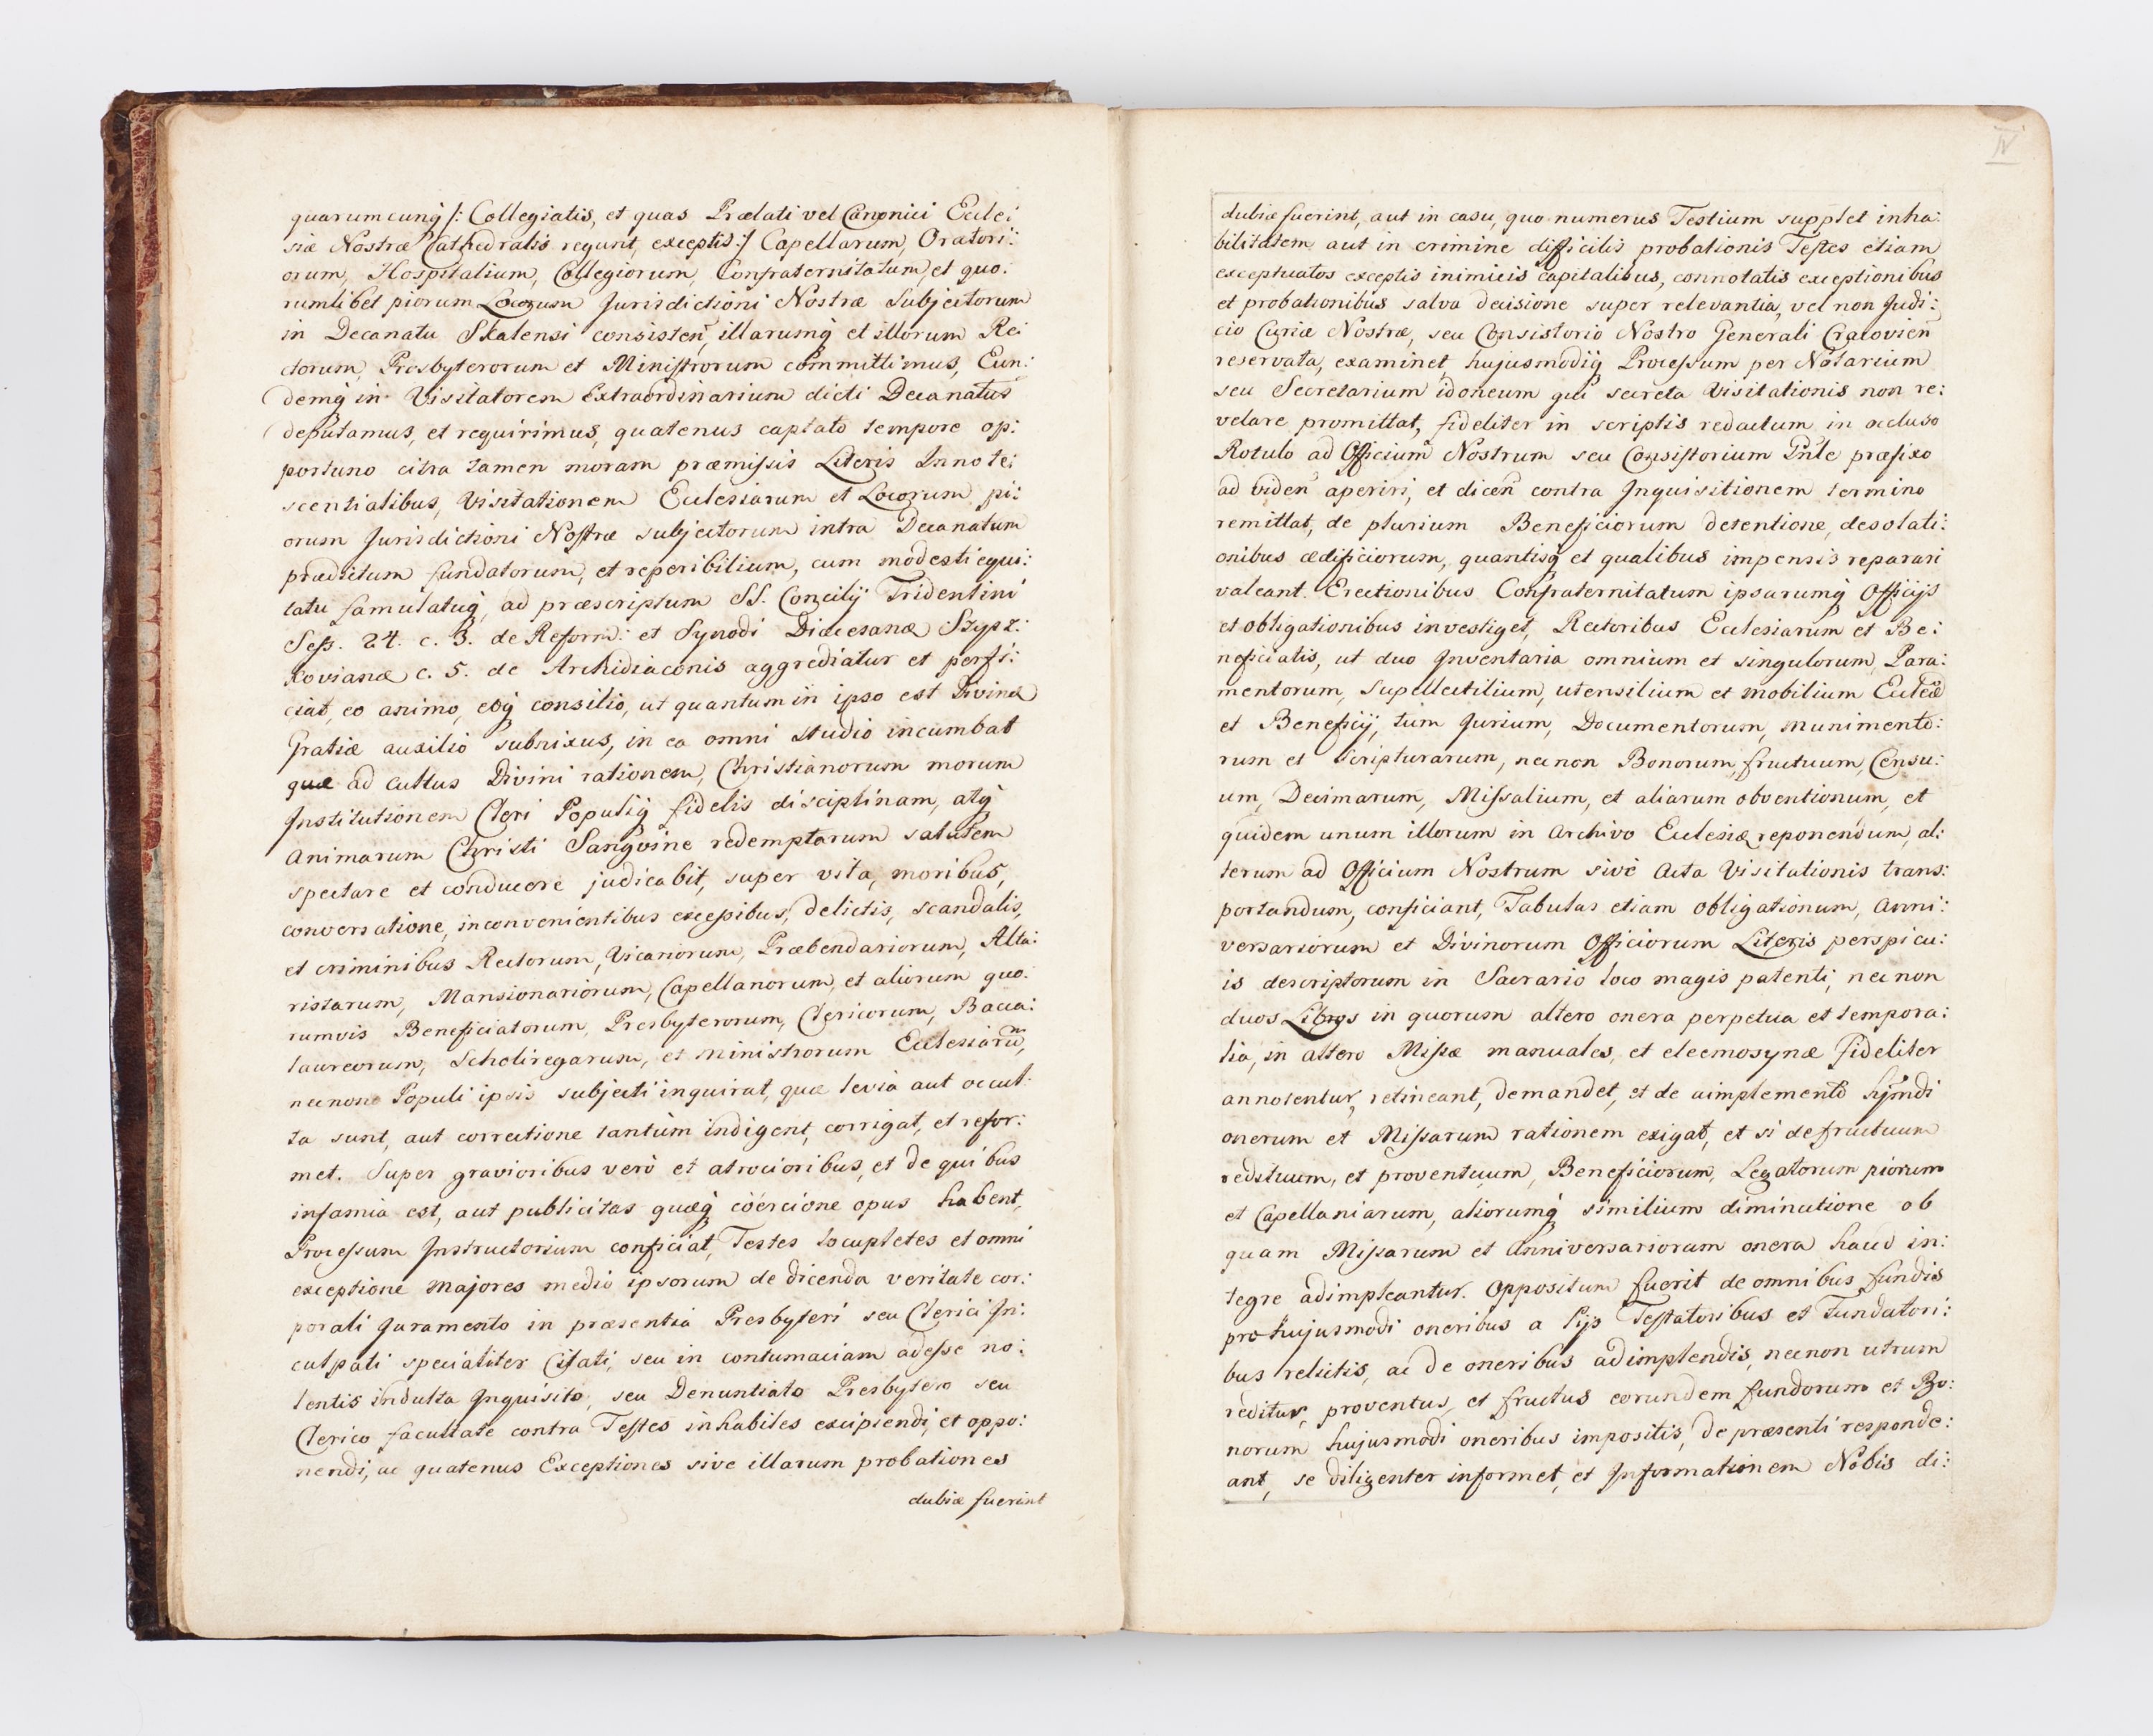 quarumcunq́ /: Collegiatis, et quas Prælati vel Canonici Eccle:
siæ Nostræ Cathedralis regunt, exceptis :/ Capellarum, Oratori:
orum, Hospitalium, Collegiorum, Confraternitatum, et quo:
rumlibet piorum Locorum Jurisdictioni Nostræ Subjectorum
in Decanatu Skalensi consisteñ, illarumq́ et illorum Re:
ctorum, Presbyterorum et Ministrorum committimus, Eun:
demq́ in Visitatorem Extraordinarium dicti Decanatus
deputamus, et requirimus, quatenus captato tempore op:
portuno citra tamen moram præmissis Literis Innote:
scentialibus, Visitationem Ecclesiarum et Locorum pi:
orum Jurisdictioni Nostræ subjectorum intra Decanatum
prædictum fundatorum, et reperibilium, cum modesti equi:
tatu famulatuq́, ad præscriptum SS. Concilij Tridentini
Sess. 24. c. 3. de Reform: et Synodi Diæcesanæ Szysz:
kovianæ c. 5. de Archidiaconis aggrediatur et perfi:
ciat, eo animo, eoq́ consilio, ut quantum in ipso est Divinæ
Gratiæ auxilio subnixus, in ea omni studio incumbat
quæ ad cultus Divini rationem, Christianorum morum
Institutionem Cleri Populiq́ fidelis disciplinam, atq́
Animarum Christi Sangvine redemptarum salutem
spectare et conducere judicabit, super vita, moribus,
conversatione, inconvenientibus excessibus, delictis, scandalis,
et criminibus Rectorum, Vicariorum, Præbendariorum, Alta:
ristarum, Mansionariorum, Capellanorum, et aliorum quo:
rumvis Beneficiatorum, Presbyterorum, Clericorum, Bacca:
laureorum, Scholiregarum, et ministrorum Ecclesiarũ,
necnon Populi ipsis subjecti inquirat, quæ levia aut occul:
ta sunt, aut correctione tantùm indigent, corrigat, et refor:
met. Super gravioribus verò et atrocioribus, et de quibus
infamia est, aut publicitas quæq́ coërcione opus habent,
Processum Instructorium conficiat, Testes locupletes et omni
exceptione majores medio ipsorum de dicenda veritate cor:
porali Juramento in præsentia Presbyteri seu Clerici In:
culpati specialiter Citati, seu in contumaciam adesse no:
lentis indulta Inquisito, seu Denuntiato Presbytero seu
Clerico facultate contra Testes inhabiles excipiendi, et oppo:
nendi, ac quatenus Exceptiones sive illarum probationes
dubiæ fuerint
IV
dubiæ fuerint, aut in casu, quo numerus Testium supplet inha:
bilitatem aut in crimine difficilis probationis Testes etiam
exceptuatos exceptis inimicis capitalibus, connotatis exceptionibus
et probationibus salva decisione super relevantia, vel non Judi:
cio Curiæ Nostræ, seu Consistorio Nostro Generali Cracovień
reservata, examinet, hujusmodiq́ Processum per Notarium
seu Secretarium idoneum qui secreta Visitationis non re:
velare promittat, fideliter in scriptis redactum in occluso
Rotulo ad Officium Nostrum seu Consistorium Pñte præfixo
ad videñ aperiri, et diceñ contra Inquisitionem termino
remittat, de plurium Beneficiorum detentione, desolati:
onibus ædificiorum, quantisq́ et qualibus impensis reparari
valeant. Erectionibus Confraternitatum ipsarumq́ Officijs
et obligationibus investiget, Rectoribus Ecclesiarum et Be:
neficiatis, ut duo Inventaria omnium et singulorum, Para:
mentorum, Supellectilium, utensilium et mobilium Eccłeæ
et Beneficij, tum Jurium, Documentorum, munimento:
rum et scripturarum, necnon Bonorum, fructuum, Censu:
um, Decimarum, Missalium, et aliarum obventionum, et
quidem unum illorum in Archivo Ecclesiæ reponendum, al:
terum ad Officium Nostrum sive Acta Visitationis trans:
portandum, conficiant, Tabulas etiam obligationum, Anni:
versariorum et Divinorum Officiorum Literis perspicu:
is descriptorum in Sacrario loco magis patenti, necnon
duos Libros in quorum altero onera perpetua et tempora:
lia, in altero Missæ manuales, et eleemosynæ fideliter
annotentur, retineant, demandet, et de aimplemento hjmdi
onerum et Missarum rationem exigat, et si de fructuum
reddituum, et proventuum, Beneficiorum, Legatorum piorum
et Capellaniarum, aliorumq́ similium diminutione ob
quam Missarum et Anniversariorum onera haud in:
tegre adimpleantur. Oppositum fuerit de omnibus fundis
pro hujusmodi oneribus a Pijs Testatoribus et Fundatori:
bus relictis, ac de oneribus adimplendis, necnon utrum
reditus, proventus, et fructus eorundem fundorum et Bo:
norum hujusmodi oneribus impositis, de præsenti responde:
ant, se diligenter informet, et Informationem Nobis di: